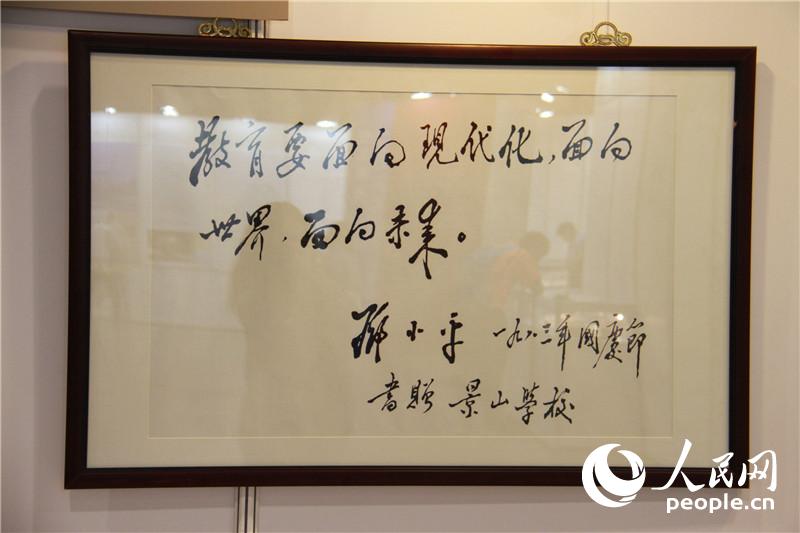 教育要面向现代化,面向
世界,面向未来。
邓小平 一九八三年國慶節
書贈 景山学校
人民网
people.cn